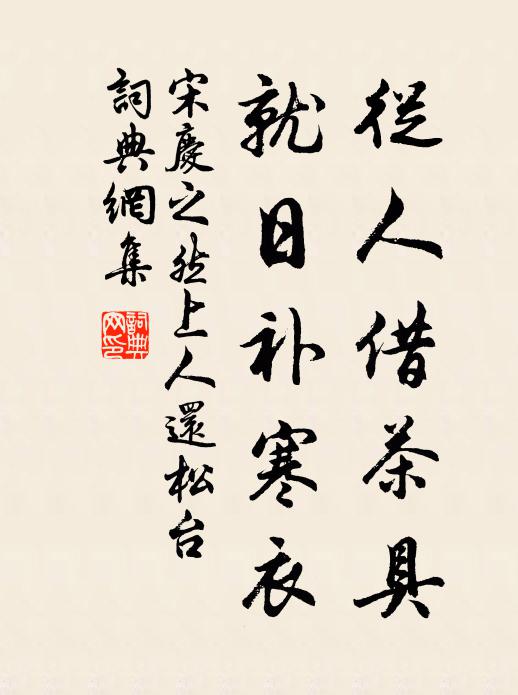 從人借茶具
就日补寒衣
宋慶之然上人還松台
詞典網集
詞典網印